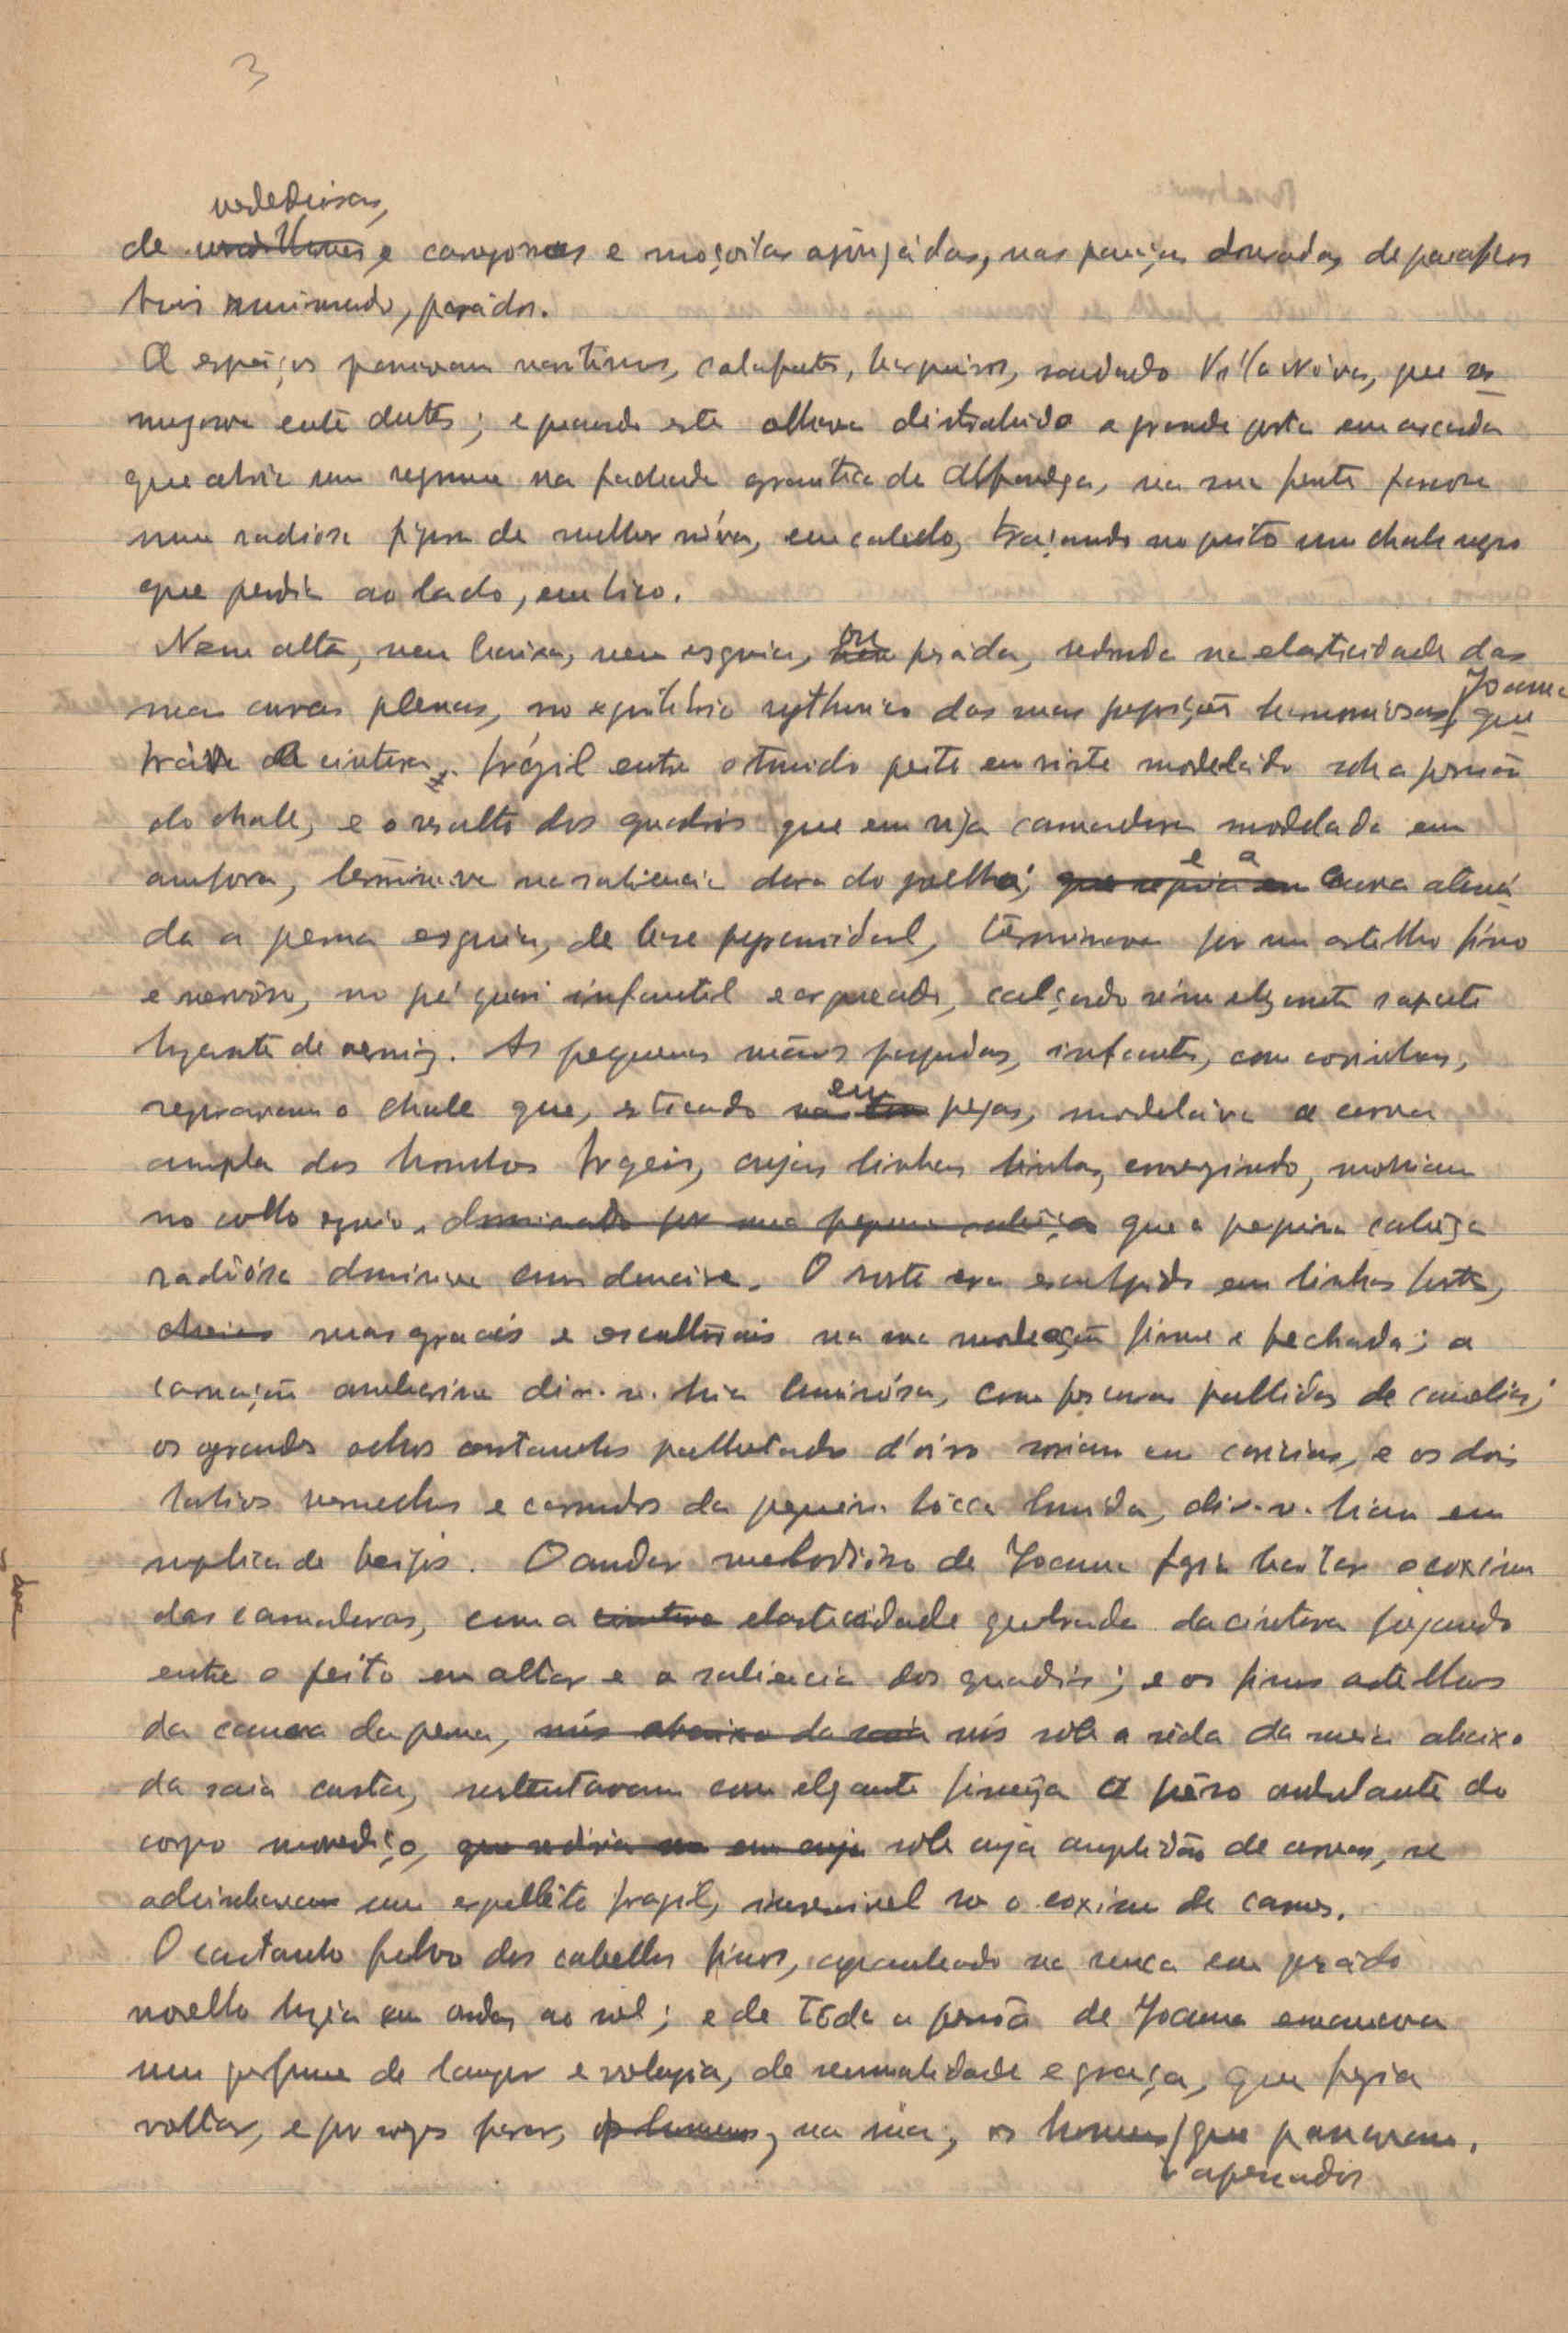 3
vendediras,
de e camponesas e moçoilas ajoujadas, nas douradas, de
tuis parádos.
A espáços passavam calafates, barqueiros, saudando Vila Nova, que res
mugava entre dentes; e quando este olhava distrahido a grande porta em arcada
que abria um na fachada granitica da Alfandega, na sua frente passou
uma radiosa figura de mulher nóva, em cabelo, traçando no peito um chale negro
que pendia ao lado, em bico.
Nem alta, nem baixa, nem esguia, nem ou pesáda, redonda na elasticidade das
suas curvas plenas, no equilibrio rythmico das suas harmoniosas, Joanna que
a cintura frágil entre o tumido peito em riste modelado sob a pressão
do chale, e o resalto dos quadris que em rija carnadura modelada em
amfora, terminava na saliencia dura do joelho; que e a curva
da a perna esguia, de base pyramidal, terminava por um artelho fino
e nervóso, no pé quasi infantil e arqueado, calçado n'um elegante sapato
luzente de verniz. As pequenas mãos papudas, infantis, com covinhas,
seguravam o chale que, esticado em pregas, modeláva a curva
ampla dos hombros frageis, cujas linhas lindas, emergindo, morriam
no collo esguio, dominado por uma pequena cabeça que a pequena cabeça
radiósa dominava com donaire. O rosto era esculpido em linhas fortes,
cheias mas graceis e esculturais na sua modelação firme e fechada; a
carnação ambarina dir-se-hia luminósa, com palidas de camelias;
os grandes olhos castanhos palhetados d'oiro soriam em caricias, e os dois
labios vermelhos e carnudos da pequena bôcca humida, dir-se-hiam em
suplica de beijos. O andar melodioso de Joanna fazia bailar o coxim
das carnaduras, com a cintura elasticidade quebrada da cintura jogando
entre o peito em altar e a saliencia dos quadris; e os finos artelhos
da canna da perna, nús abaixo da saia nús sob a sêda da meia abaixo
da saia curta, sustentavam com elegante firmeza o pêso ondulante do
corpo movediço, que em cuja sob cuja amplidão de curvas, se
adivinhavam um esqueleto fragil, insensivel sob o coxim de carnes.
O castanho fulvo dos cabellos finos, apanhado na nuca em pesádo
novello luzia em ondas ao sol; e de tôda a pessôa de Joanna emanava
um perfume de langor e volupia, de sensualidade e graça, que fazia
voltar, e por vezes parar, os homens, na rua, os homens que passavam.
apressados